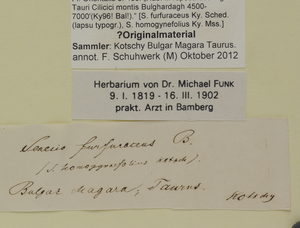 Tauri Cilicici montis Bulghardagh 4500-
7000'(Ky96! Bal!)." [S. furfuraceus Ky. Sched.
(lapsu typogr.), S. homogynefolius Ky. Mss.]
?Originalmaterial
Sammler: Kotschy Bulgar Magara Taurus.
annot. F. Schuhwerk (M) Oktober 2012
Herbarium von Dr. Michael FUNK
9. I. 1819 - 16. III. 1902
prakt. Arzt in Bamberg
Senecio furfuraceus B.
(S. homogynefolius Kotschy.)
Bulgar Magara, Taurus.
Kotschy